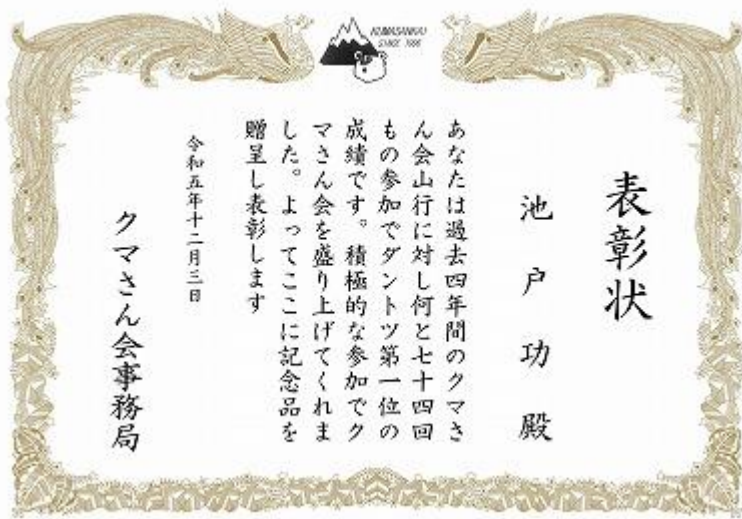 KUMASANKAI
SINCE 1986
表彰状
池戸功殿
あなたは過去四年間のクマさ
ん会山行に対し何と七十四回
もの参加でダントツ第一位の
成績です。積極的な参加でク
マさん会を盛り上げてくれま
した。よってここに記念品を
贈呈し表彰します
令和五年十二月三日
クマさん会事務局